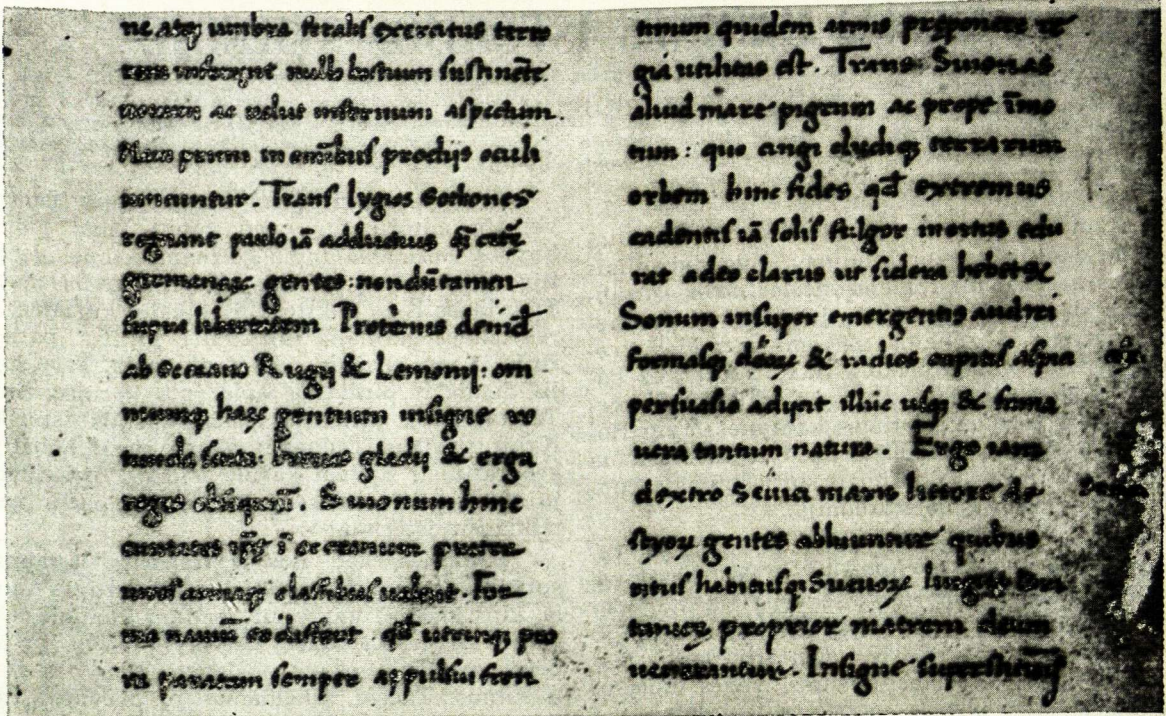 ne atq; umbra feralis exercitus terro
rem inferunt nullo hostium sustinēte
nouum ac uelut infernum aspectum.
Nam primi in omībus prelijs oculi
uincuntur. Trans lygios Gothones
regnant paulo iā adductius q̄ cetę
germanoꝝ gentes: nondū tamen
supra libertatem Protinus deind̄
ab oceano Rugij & Lemonij: om
niumq; haꝝ gentium insigne ro
tunda scuta: breues gladij & erga
reges obsequiū. Suionum hinc
ciuitates ipsę ī oceanum preter
uiros armaq; classibus ualent. For
ma nauiū eo differt qd̄ utrinq; pro
ra paratam semper appulsui fron
timum quidem armis pręponere re
gia utilitas est. Trans Suionas
aliud mare pigrum ac prope īmo
tum: quo cingi cludiq; terrarum
orbem hinc fides qd̄ extremus
cadentis iā solis fulgor in ortus edu
rat adeo clarus ut sidera hebetet
Sonum insuper emergentis audiri
formasq; & radios capitis
persuasio adijcit illuc usq; & fama
uera tantum natura. Ergo iam
dextro maris littore Ae
styoꝝ gentes abluuntur quibus
ritus habitusq; Sueuoꝝ lingua Bri
tanicę proprior matrem deum
uenerantur. Insigne